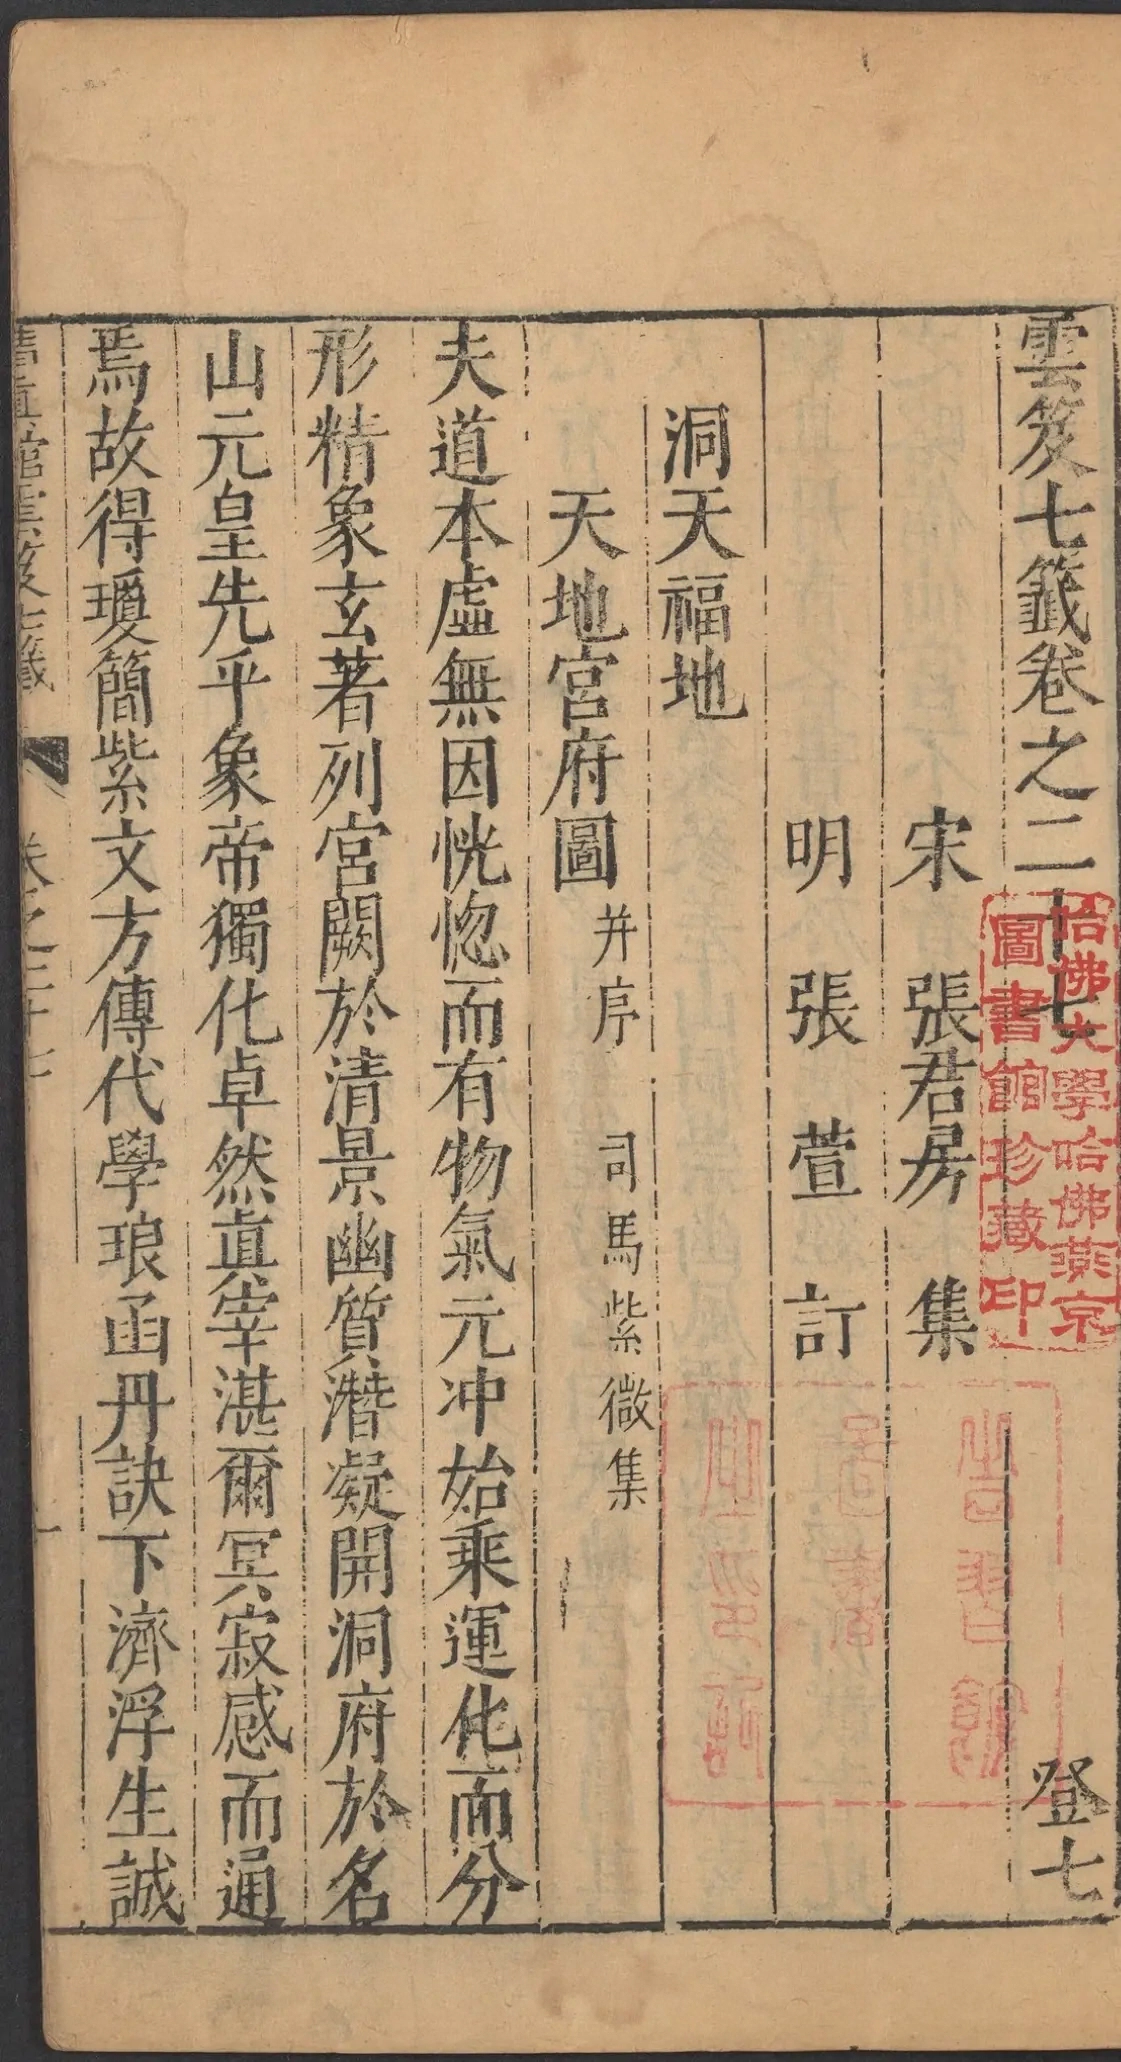 雲笈七籤卷之二十七 登七
宋 張君房 集
明 張萱 訂
洞天福地
天地宮府圖 并序 司馬紫微集
夫道本虛無因恍惚而有物氣元冲始乘運化而分
形精象玄著列宮闕於清景幽質潛凝開洞府於名
山元皇先乎象帝獨化卓然真宰湛爾冥寂感而通
焉故得瓊簡紫文方傳代學琅函丹訣下濟浮生誠
清真館雲笈七籤 卷之二十七 一
哈佛大學哈佛燕京
圖書館珍藏印